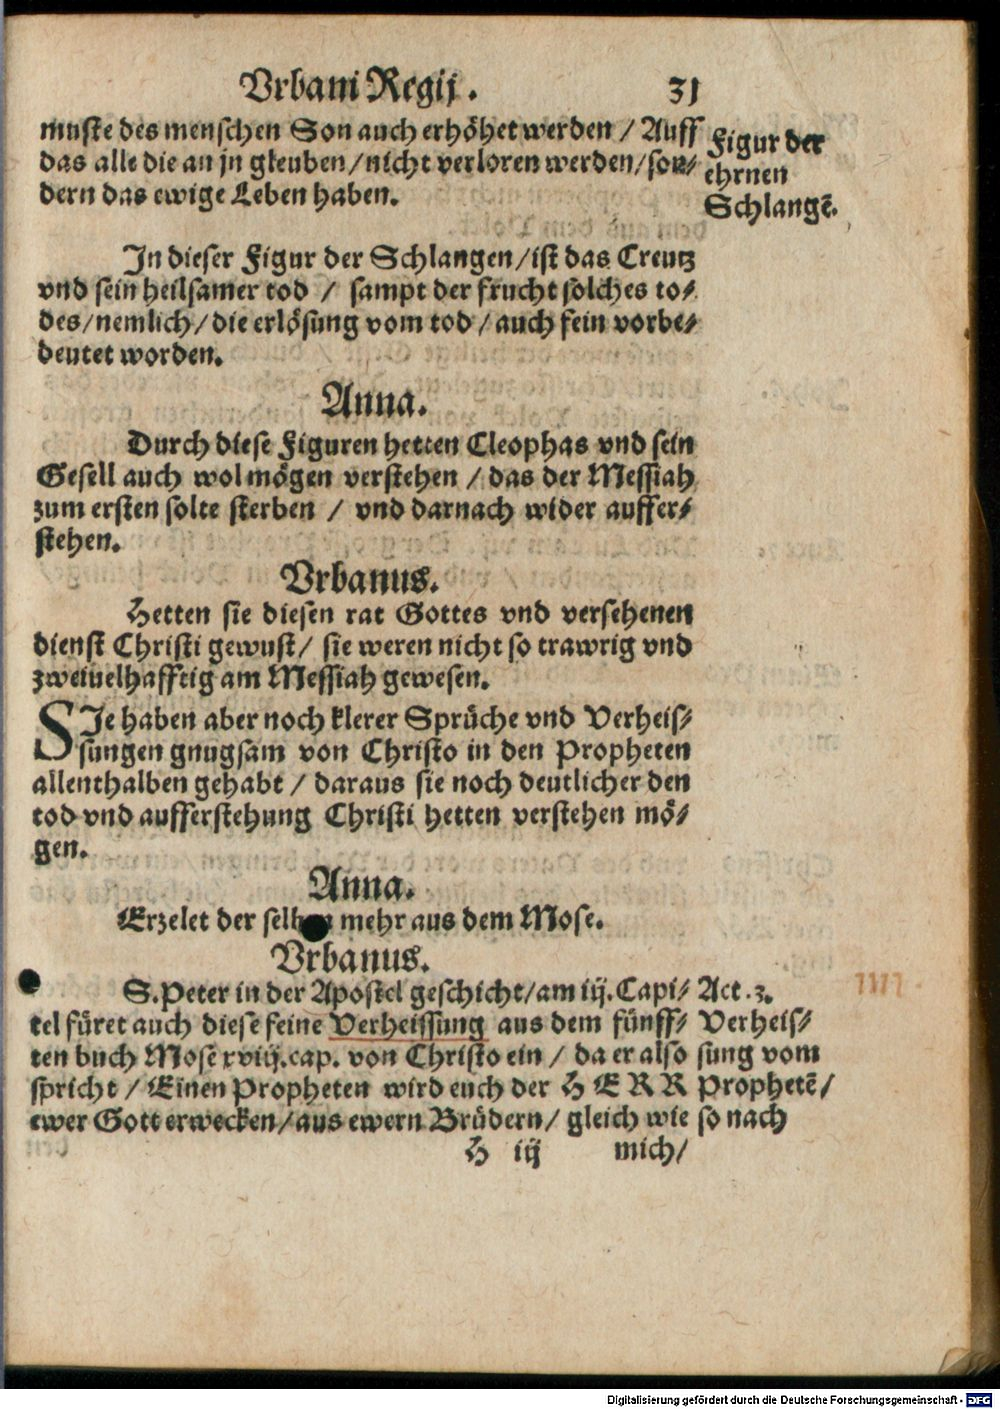 Vrbani Regij. 31
muste des menschen Son auch erhöhet werden / Auff
das alle die an jn gleuben/nicht verloren werden/son⸗
dern das ewige Leben haben.
Figur der
ehrnen
Schlangẽ.
In dieser Figur der Schlangen/ist das Creutz
vnd sein heilsamer tod / sampt der frucht solches to⸗
des/nemlich/die erlösung vom tod/auch fein vorbe⸗
deutet worden.
Anna.
Durch diese Figuren hetten Cleophas vnd sein
Gesell auch wol mögen verstehen / das der Messiah
zum ersten solte sterben / vnd darnach wider auffer⸗
stehen.
Vrbanus.
Hetten sie diesen rat Gottes vnd versehenen
dienst Christi gewust/ sie weren nicht so trawrig vnd
zweiuelhafftig am Messiah gewesen.
SJe haben aber noch klerer Sprüche vnd Verheis⸗
sungen gnugsam von Christo in den Propheten
allenthalben gehabt / daraus sie noch deutlicher den
tod vnd aufferstehung Christi hetten verstehen mö⸗
gen.
Anna.
Erzelet der selben mehr aus dem Mose.
Vrbanus.
S. Peter in der Apostel geschicht/am iij. Capi⸗
tel füret auch diese feine Verheissung aus dem fünff⸗
ten buch Mose xviij. cap. von Christo ein / da er also
spricht / Einen Propheten wird euch der HERR
ewer Gott erwecken/aus ewern Brüdern/ gleich wie
Act. 3.
Verheis⸗
sung vom
Prophetẽ/
so nach
H iij mich/
Digitalisierung gefördert durch die Deutsche Forschungsgemeinschaft - DFG